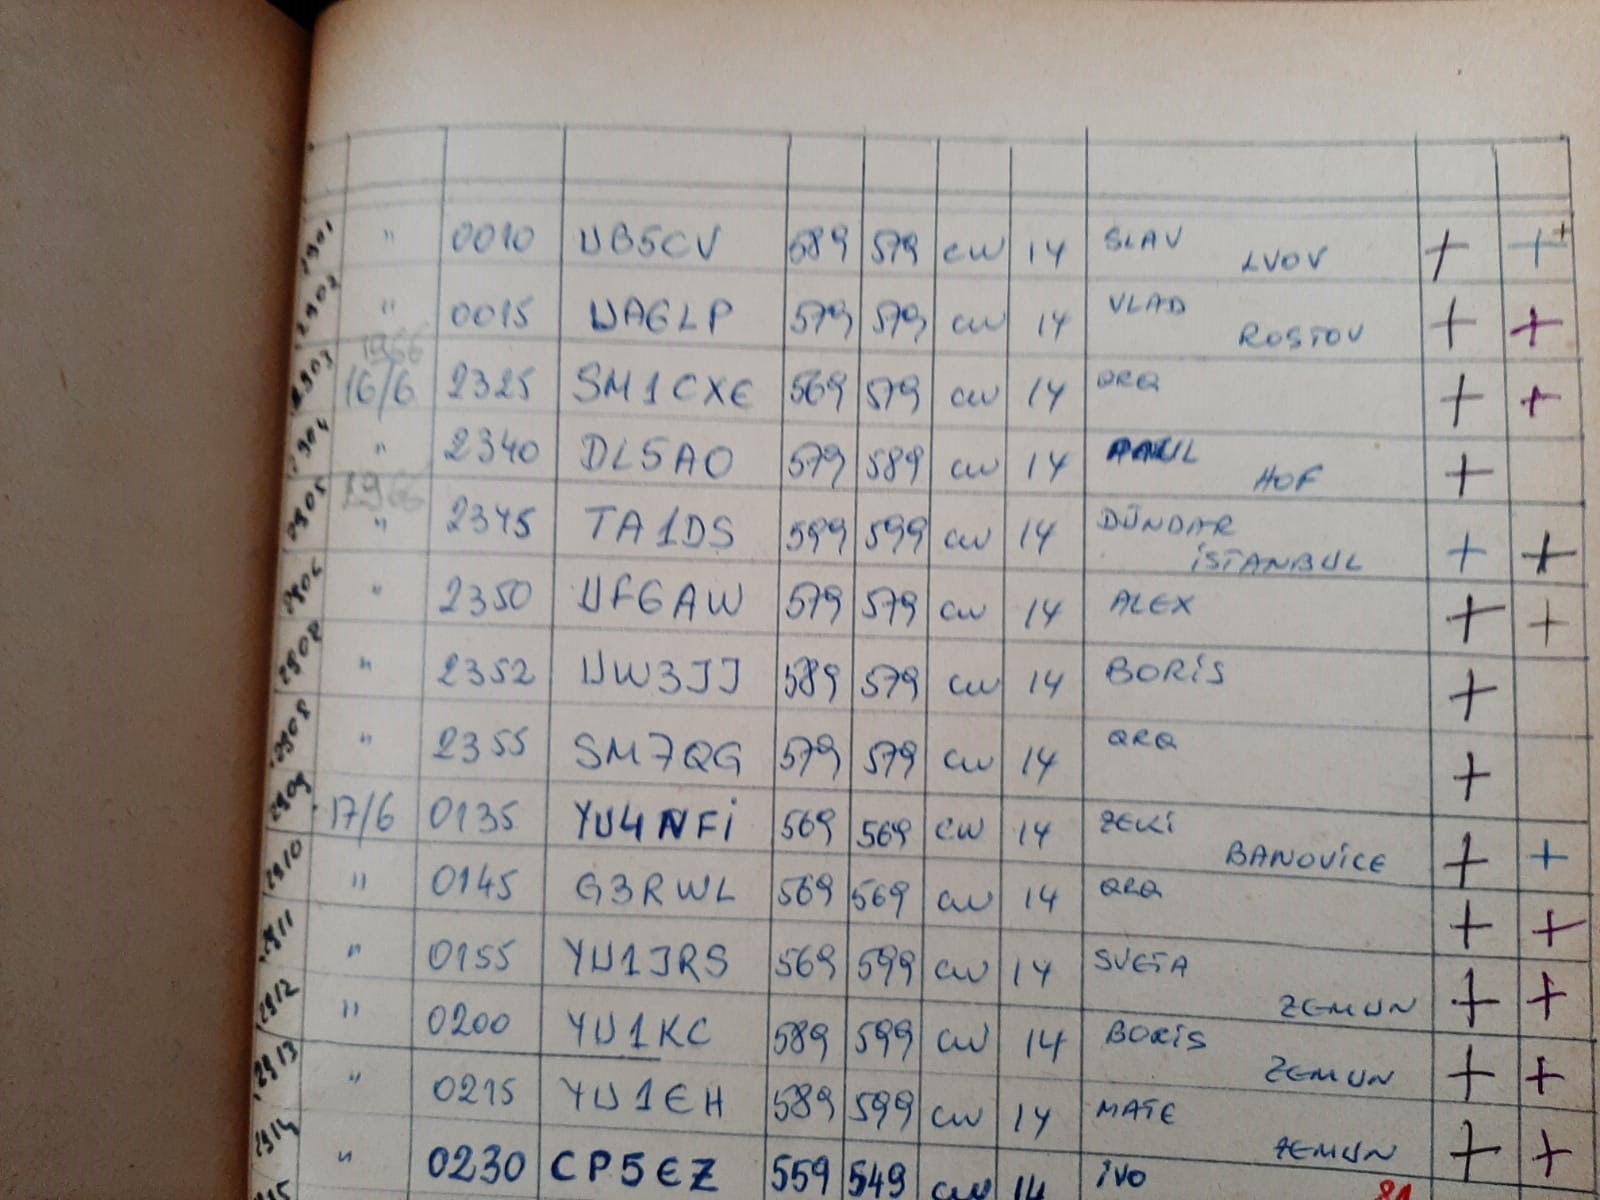 2901 " 0010 UB5CV 589 579 CW 14 SLAV LVOV + +
2902 " 0015 UA6LP 579 579 CW 14 VLAD ROSTOV + +
1966
2903 16/6 2325 SM1CXE 569 579 CW 14 QRQ + +
2904 " 2340 DL5AO 579 589 CW 14 PAUL HOF +
1966
2905 " 2345 TA1DS 599 599 CW 14 DÜNDAR İSTANBUL + +
2906 " 2350 UF6AW 579 579 CW 14 ALEX + +
" 2352 UW3JJ 589 579 CW 14 BORİS +
2908 " 2355 SM7QG 579 579 CW 14 QRQ +
2909 17/6 0135 YU4NFİ 569 569 CW 14 ZEKİ BANOVİCE + +
2910 " 0145 G3RWL 569 569 CW 14 QRQ + +
2911 " 0155 YU1JRS 569 599 CW 14 SVETA ZEMUN + +
2912 " 0200 YU1KC 589 599 CW 14 BORİS ZEMUN + +
2913 " 0215 YU1EH 589 599 CW 14 MATE ZEMUN + +
2914 " 0230 CP5EZ 559 549 CW 14 İVO